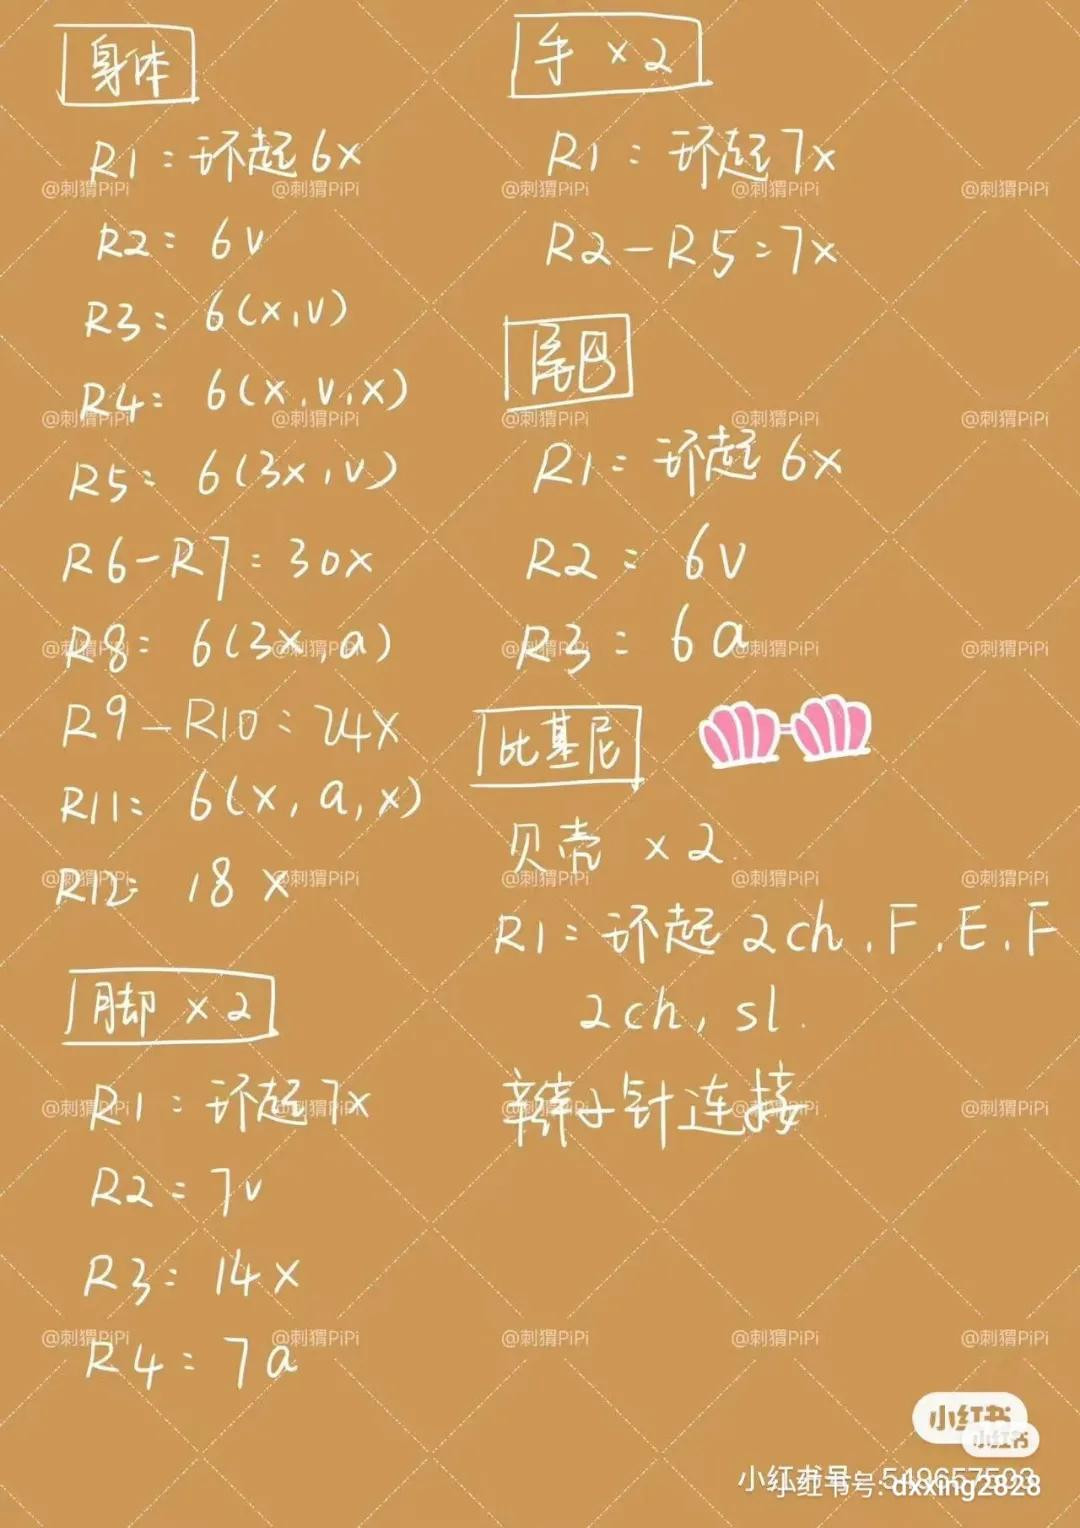 身体
R1：环起6x
R2：6v
R3：6(x,v)
R4：6(x,v,x)
R5：6(3x,v)
R6-R7：30x
R8：6(3x,a)
R9-R10：24x
R11：6(x,a,x)
R12：18x
脚 x2
R1：环起7x
R2：7v
R3：14x
R4：7a
手 x2
R1：环起7x
R2-R5：7x
尾巴
R1：环起6x
R2：6v
R3：6a
比基尼
贝壳 x2
R1：环起2ch,F,E,F
2ch,sl.
辫子针连接
@刺猬PiPi @刺猬PiPi @刺猬PiPi @刺猬PiPi @刺猬PiPi
@刺猬PiPi @刺猬PiPi @刺猬PiPi @刺猬PiPi @刺猬PiPi
@刺猬PiPi @刺猬PiPi @刺猬PiPi @刺猬PiPi @刺猬PiPi
@刺猬PiPi @刺猬PiPi @刺猬PiPi @刺猬PiPi @刺猬PiPi
@刺猬PiPi @刺猬PiPi @刺猬PiPi @刺猬PiPi @刺猬PiPi
@刺猬PiPi @刺猬PiPi @刺猬PiPi @刺猬PiPi @刺猬PiPi
小红书
小红书
小红书号: dxxing2828